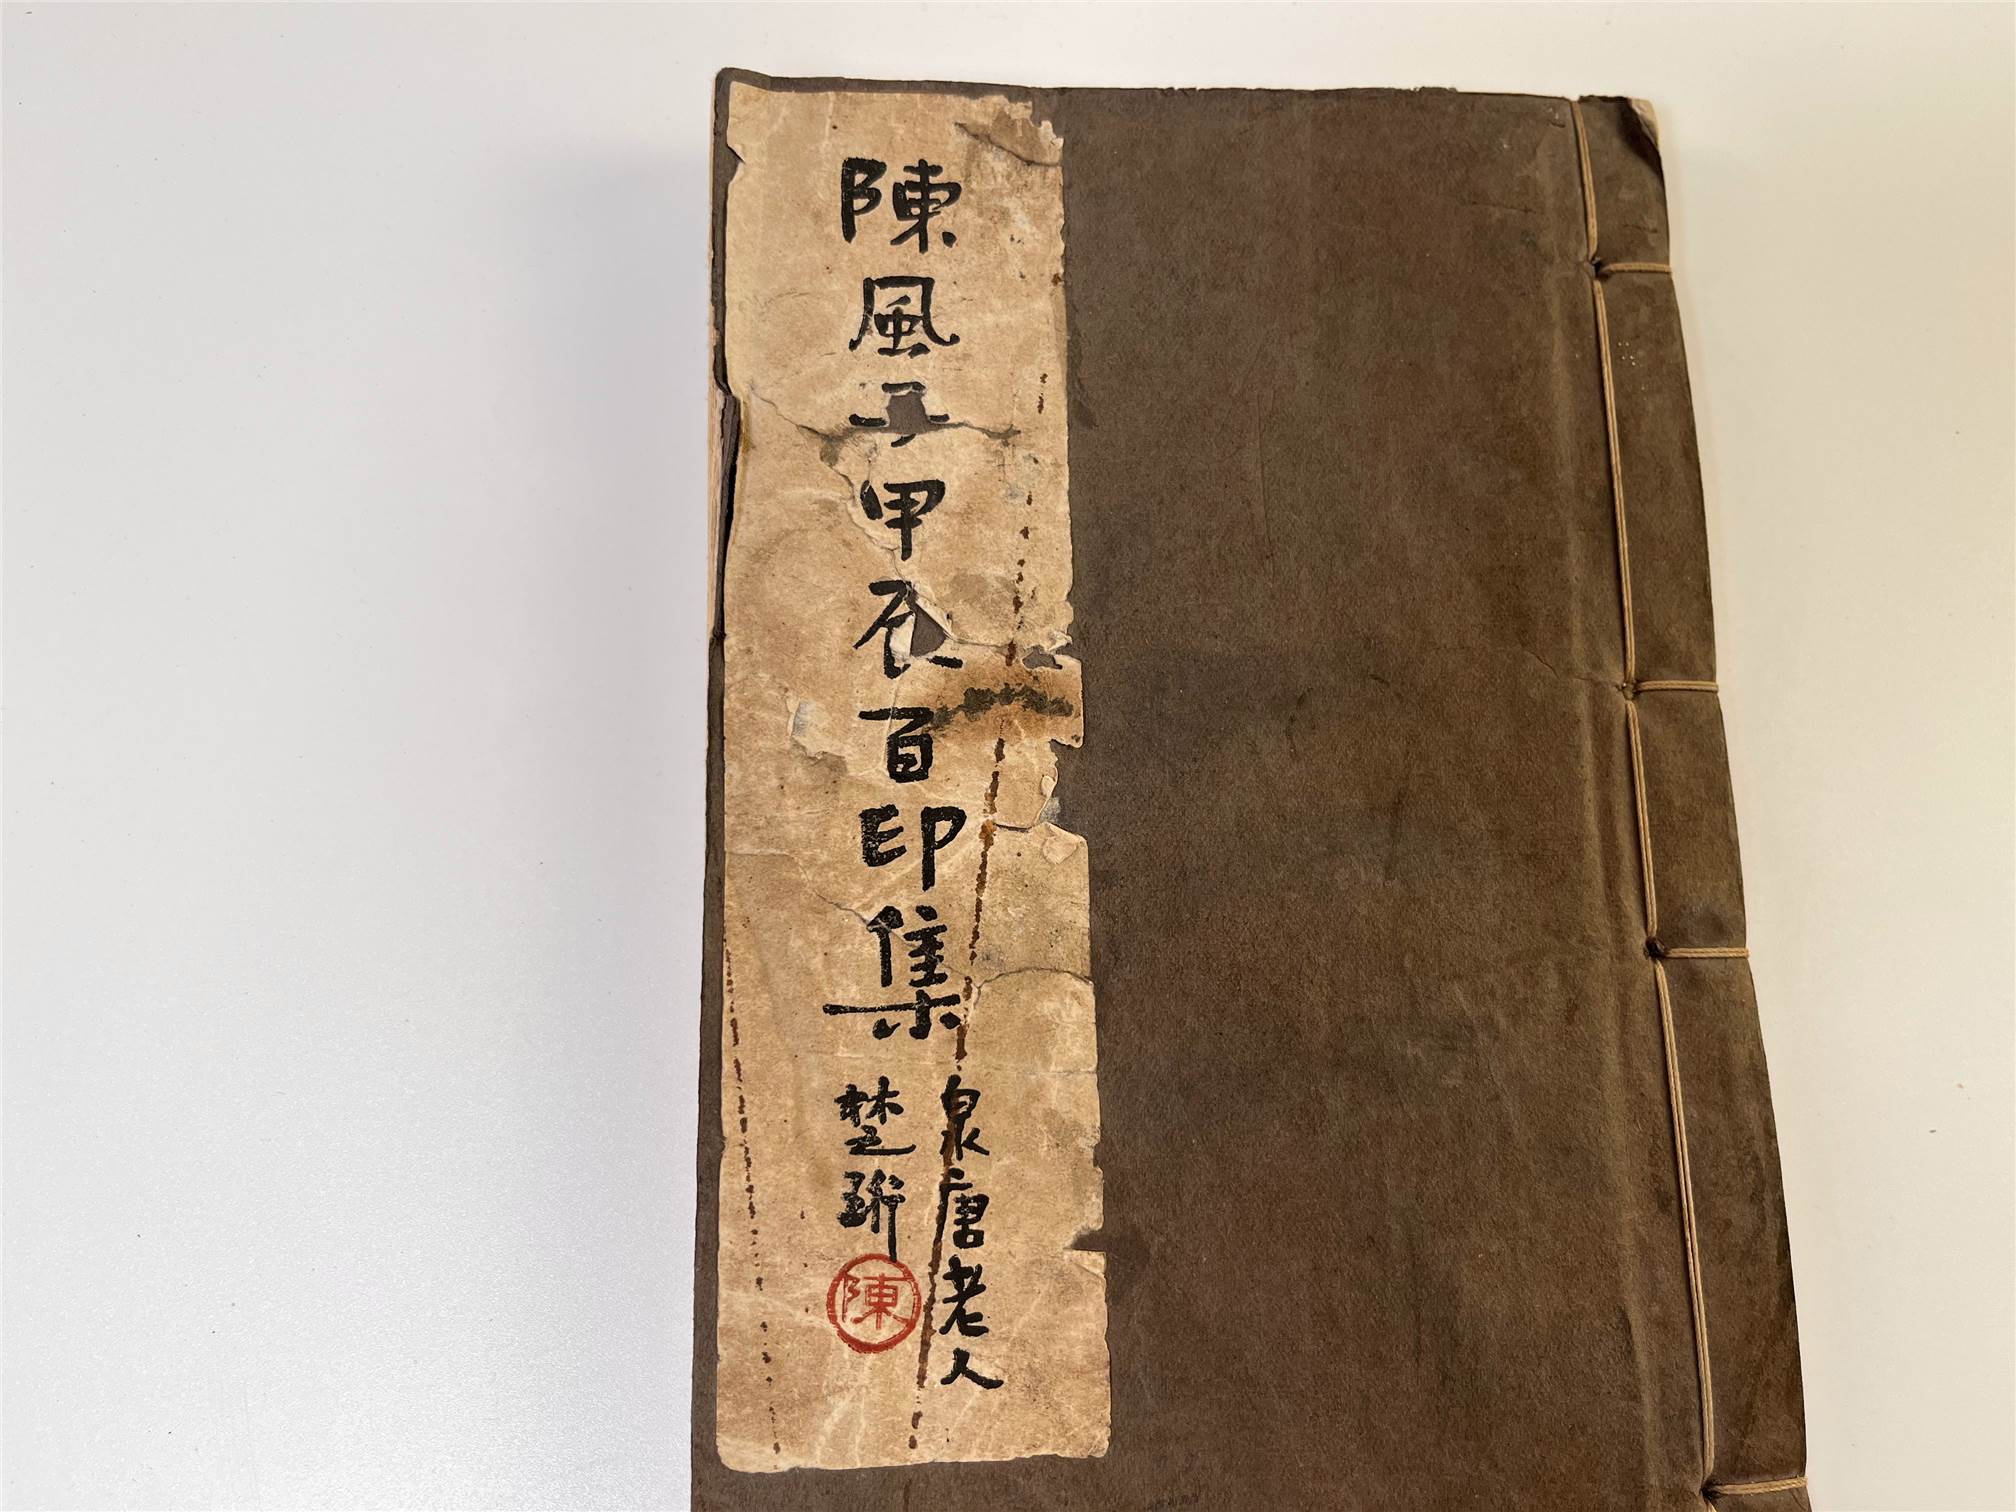 陳風子甲辰百印集
泉唐老人
楚珩
陳